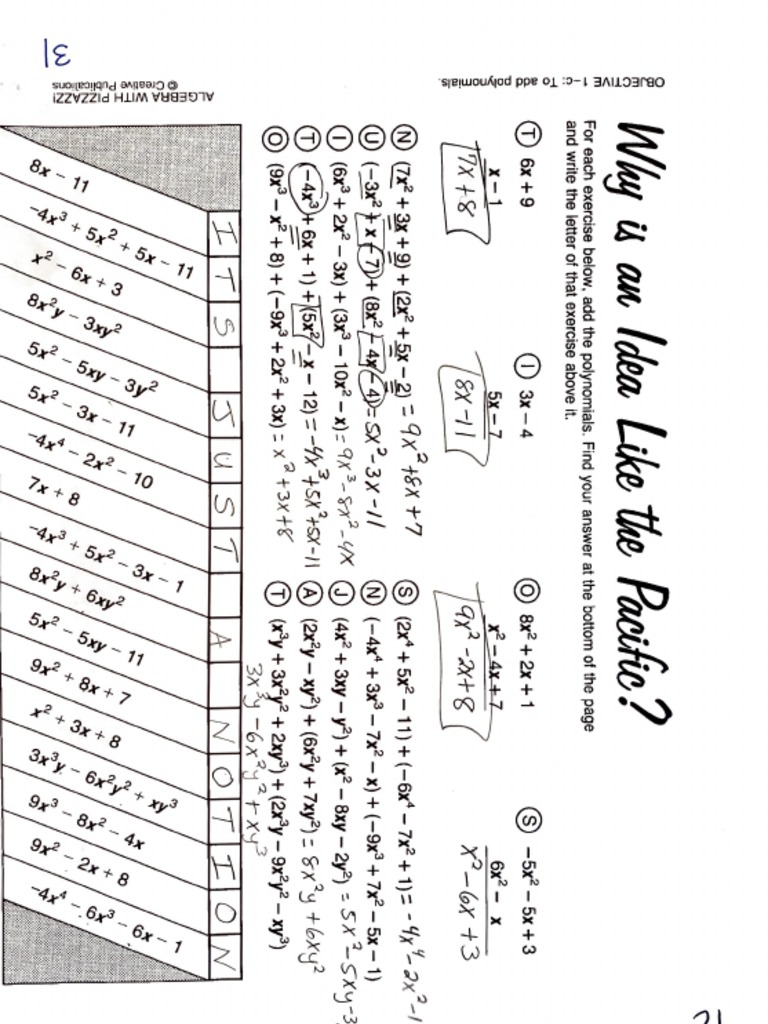 OBJECTIVE 1–c: To add polynomials.
Why is an Idea Like the Pacific?
For each exercise below, add the polynomials. Find your answer at the bottom of the page
and write the letter of that exercise above it.
T 6x + 9
x − 1
7x + 8
I 3x − 4
5x − 7
8x − 11
O 8x² + 2x + 1
x² − 4x + 7
9x² − 2x + 8
S −5x² − 5x + 3
6x² − x
x² − 6x + 3
N (7x² + 3x + 9) + (2x² + 5x − 2) = 9x² + 8x + 7
U (−3x² + x − 7) + (8x² − 4x − 4) = 5x² − 3x − 11
I (6x³ + 2x² − 3x) + (3x³ − 10x² − x) = 9x³ − 8x² − 4x
T (−4x³ + 6x + 1) + (5x² − x − 12) = −4x³ + 5x² + 5x − 11
O (9x³ − x² + 8) + (−9x³ + 2x² + 3x) = x² + 3x + 8
S (2x⁴ + 5x² − 11) + (−6x⁴ − 7x² + 1) = −4x⁴ − 2x² − 1
N (−4x⁴ + 3x³ − 7x² − x) + (−9x³ + 7x² − 5x − 1)
J (4x² + 3xy − y²) + (x² − 8xy − 2y²) = 5x² − 5xy − 3
A (2x²y − xy²) + (6x²y + 7xy²) = 8x²y + 6xy²
T (x³y + 3x²y² + 2xy³) + (2x³y − 9x²y² − xy³)
3x³y − 6x²y² + xy³
I T S J U S T A N O T I O N
8x − 11
−4x³ + 5x² + 5x − 11
x² − 6x + 3
8x²y − 3xy²
5x² − 5xy − 3y²
5x² − 3x − 11
−4x⁴ − 2x² − 10
7x + 8
−4x³ + 5x² − 3x − 1
8x²y + 6xy²
5x² − 5xy − 11
9x² + 8x + 7
x² + 3x + 8
3x³y − 6x²y² + xy³
9x³ − 8x² − 4x
9x² − 2x + 8
−4x⁴ − 6x³ − 6x − 1
ALGEBRA WITH PIZZAZZ!
© Creative Publications
31